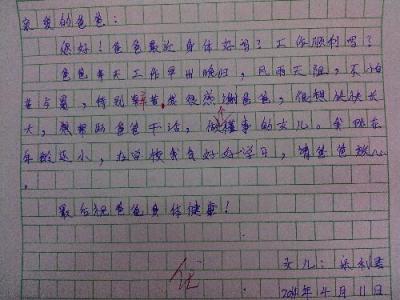 亲爱的爸爸：
您好！爸爸最近身体好吗？工作顺利吗？
爸爸每天工作早出晚归，风雨无阻，不怕
苦与累，特别辛苦，我想感谢爸爸，很想快快长
大，想帮助爸爸干活，做懂事的女儿。我现在
年龄还小，在学校我会好好学习，请爸爸放心
。
最后祝爸爸身体健康！
优
女儿：
年4月11日